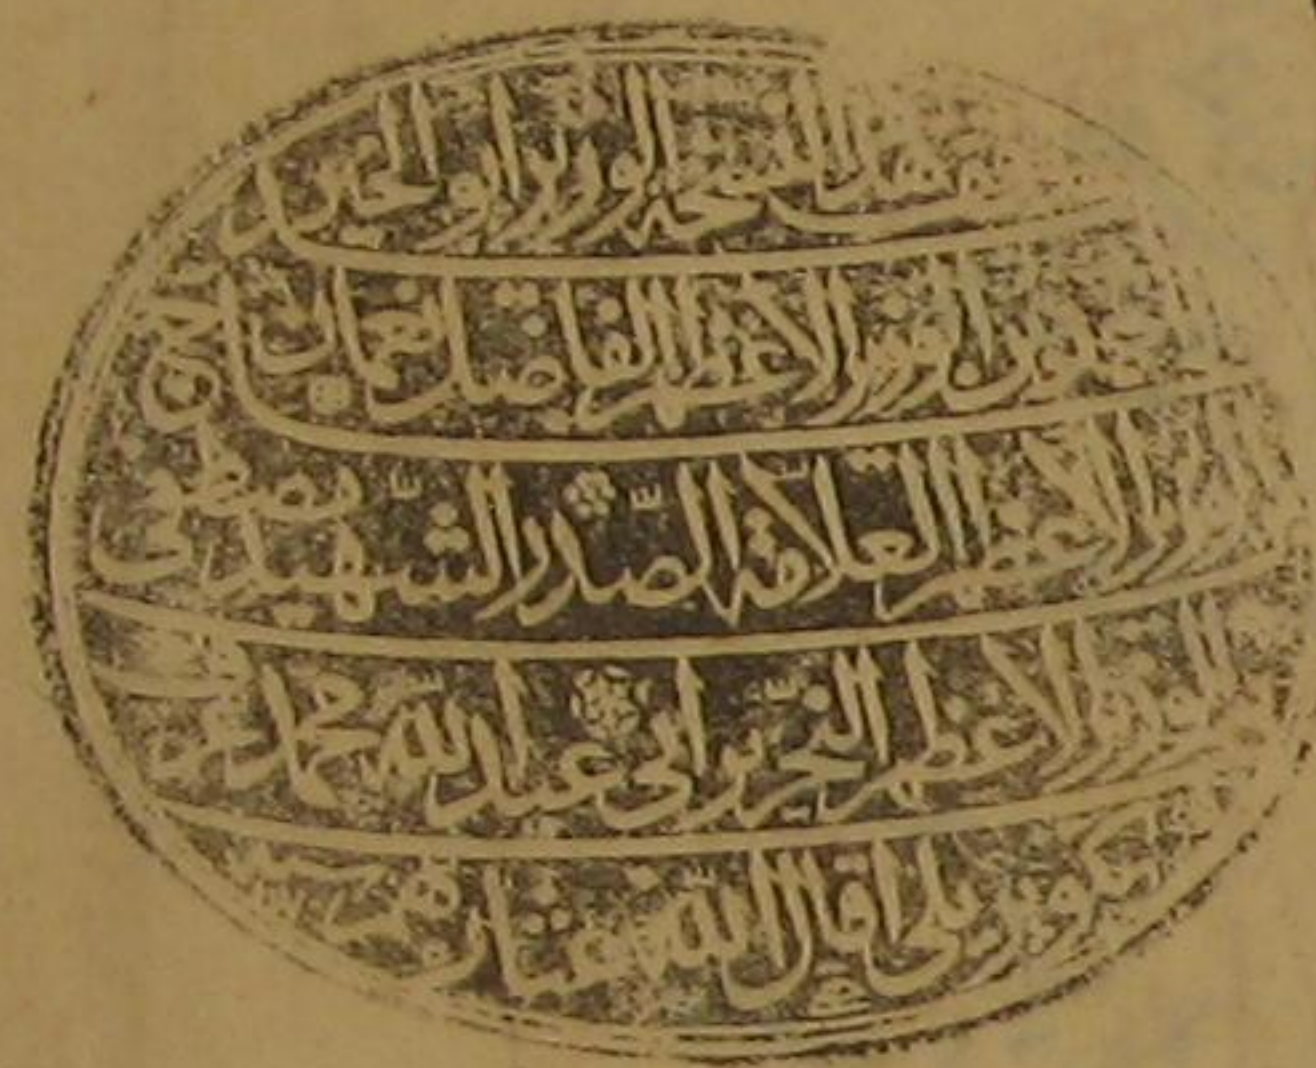 وقف هذه النسخة الوزير ابو الخير احمد
الوزير الاعظم الفاضل نعمان بن
الوزير الاعظم العلامة الصدر الشهيد مصطفى
الوزير الاعظم النحرير ابي عبد الله محمد عرف
بكوپريلي اقال الله عثارهم